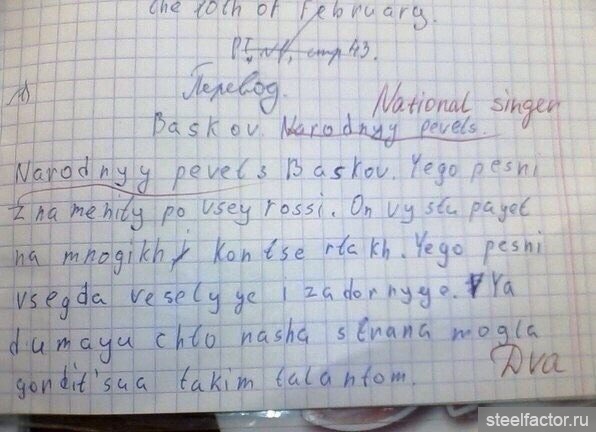 the 10th of February.
РТ, №1, стр 43.
1)
Перевод.
National singer
Baskov. Narodnyy pevets.
Narodnyy pevets Baskov. Yego pesni
znamenity po vsey rossi. On vystupayet
na mnogikh kontsertakh. Yego pesni
vsegda veselyye i zadornyye. Ya
dumayu chto nasha strana mogla
gordit'sua takim talantom.
Dva
steelfactor.ru